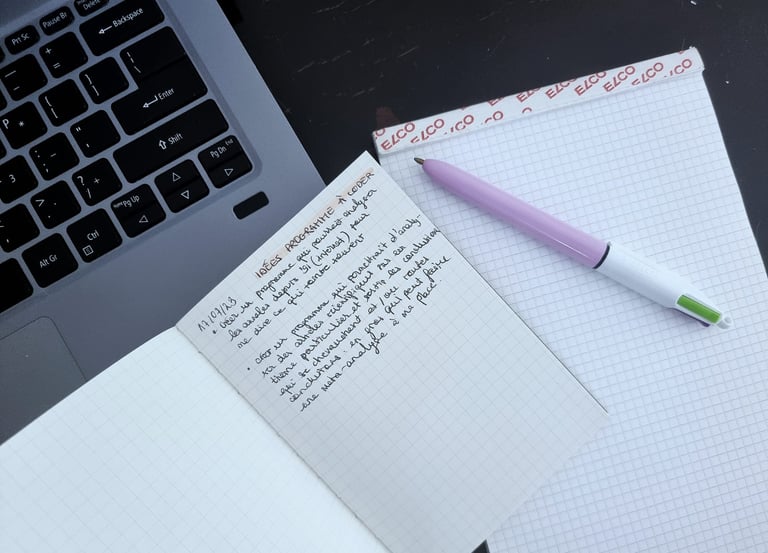 Prt Sc
Pause Br
Delete
Backspace
Enter
Shift
Pg Up
Pg Dn
Alt Gr
Ctrl
ELCO ELCO ELCO ELCO ELCO ELCO
17/07/23
IDÉES PROGRAMME À CODER
• Créer un programme qui pourrait analyser
les annales depuis ici (internet) pour
me dire ce qui tombe souvent
• Créer un programme qui permettrait d'analy-
ser des articles scientifiques sur un
thème particulier et sortir les conclusions
qui se chevauchent et/ou toutes
conclusions : en gros qui peut faire
une méta-analyse à ma place.